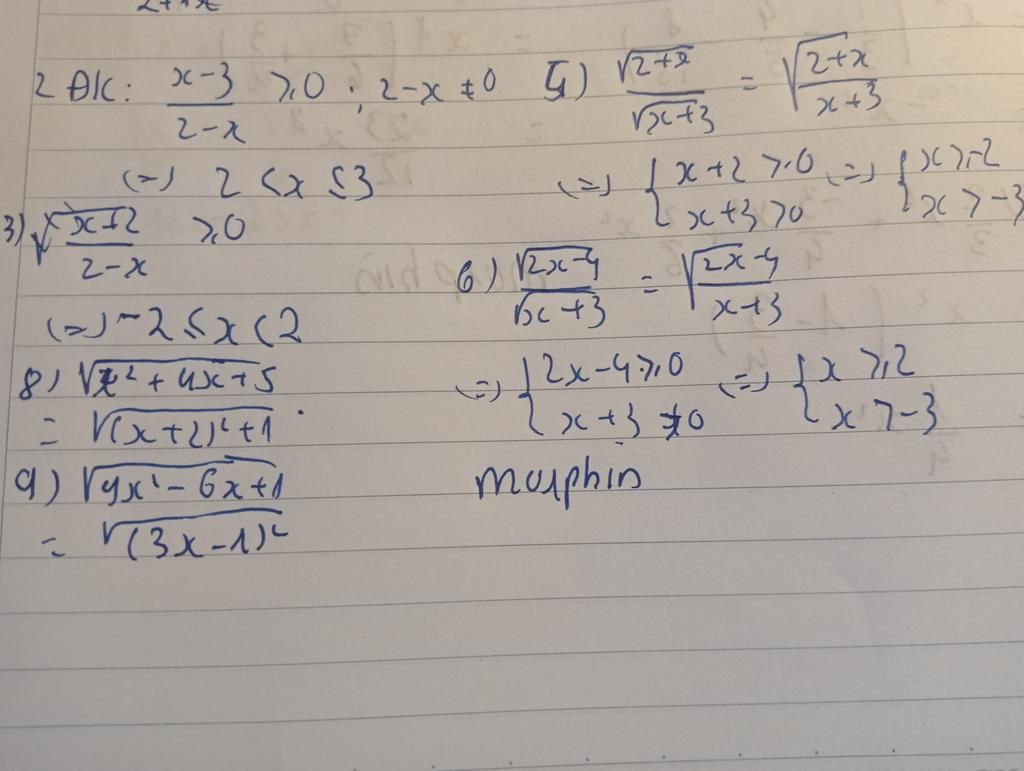 2 ĐK: \frac{x-3}{2-x} ≥ 0 ; 2-x ≠ 0
(=) 2 < x ≤ 3
3) \sqrt{\frac{x+2}{2-x}} ≥ 0
(=) -2 ≤ x < 2
8) \sqrt{x² + 4x + 5}
= \sqrt{(x+2)² + 1}
9) \sqrt{9x² - 6x + 1}
= \sqrt{(3x-1)²}
5) \frac{\sqrt{2+x}}{\sqrt{x+3}} = \sqrt{\frac{2+x}{x+3}}
(=) { x+2 ≥ 0 (=) { x ≥ -2
x+3 > 0 x > -3
6) \frac{\sqrt{2x-4}}{\sqrt{x+3}} = \sqrt{\frac{2x-4}{x+3}}
(=) { 2x-4 ≥ 0 (=) { x ≥ 2
x+3 ≠ 0 x > -3
morphin